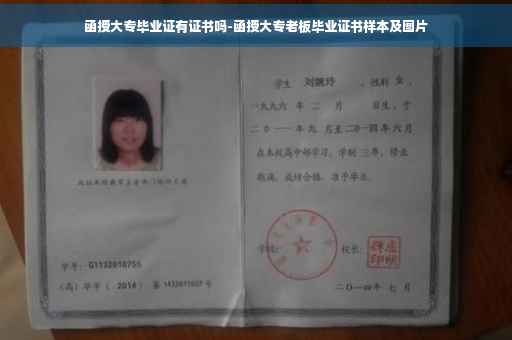 函授大专毕业证有证书吗-函授大专老板毕业证书样本及图片
学生 刘婉玲 ，性别 女 ，
一九九六 年 二 月 日生，于
二〇一一 年 九 月至 二〇一四 年 六 月
在本校高中部学习，学制 三 年，修业
期满，成绩合格，准予毕业。
学校： 校长：
学号： G1132010755
（高）毕字（ 2014 ）第 1432011027 号
二〇一四 年 七 月